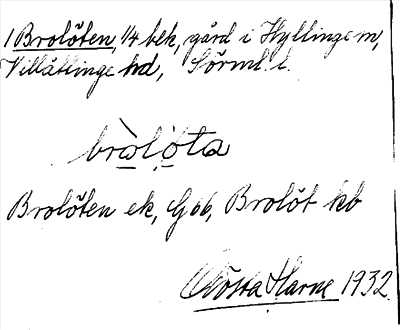 1 Brolöten, 1/4 bek, gård i Hyllinge sn,
Villåttinge hd, Sörml. l.
bròlo̤ta
Brolöten ek, G 66, Brolöt kb
Gösta Harne 1932